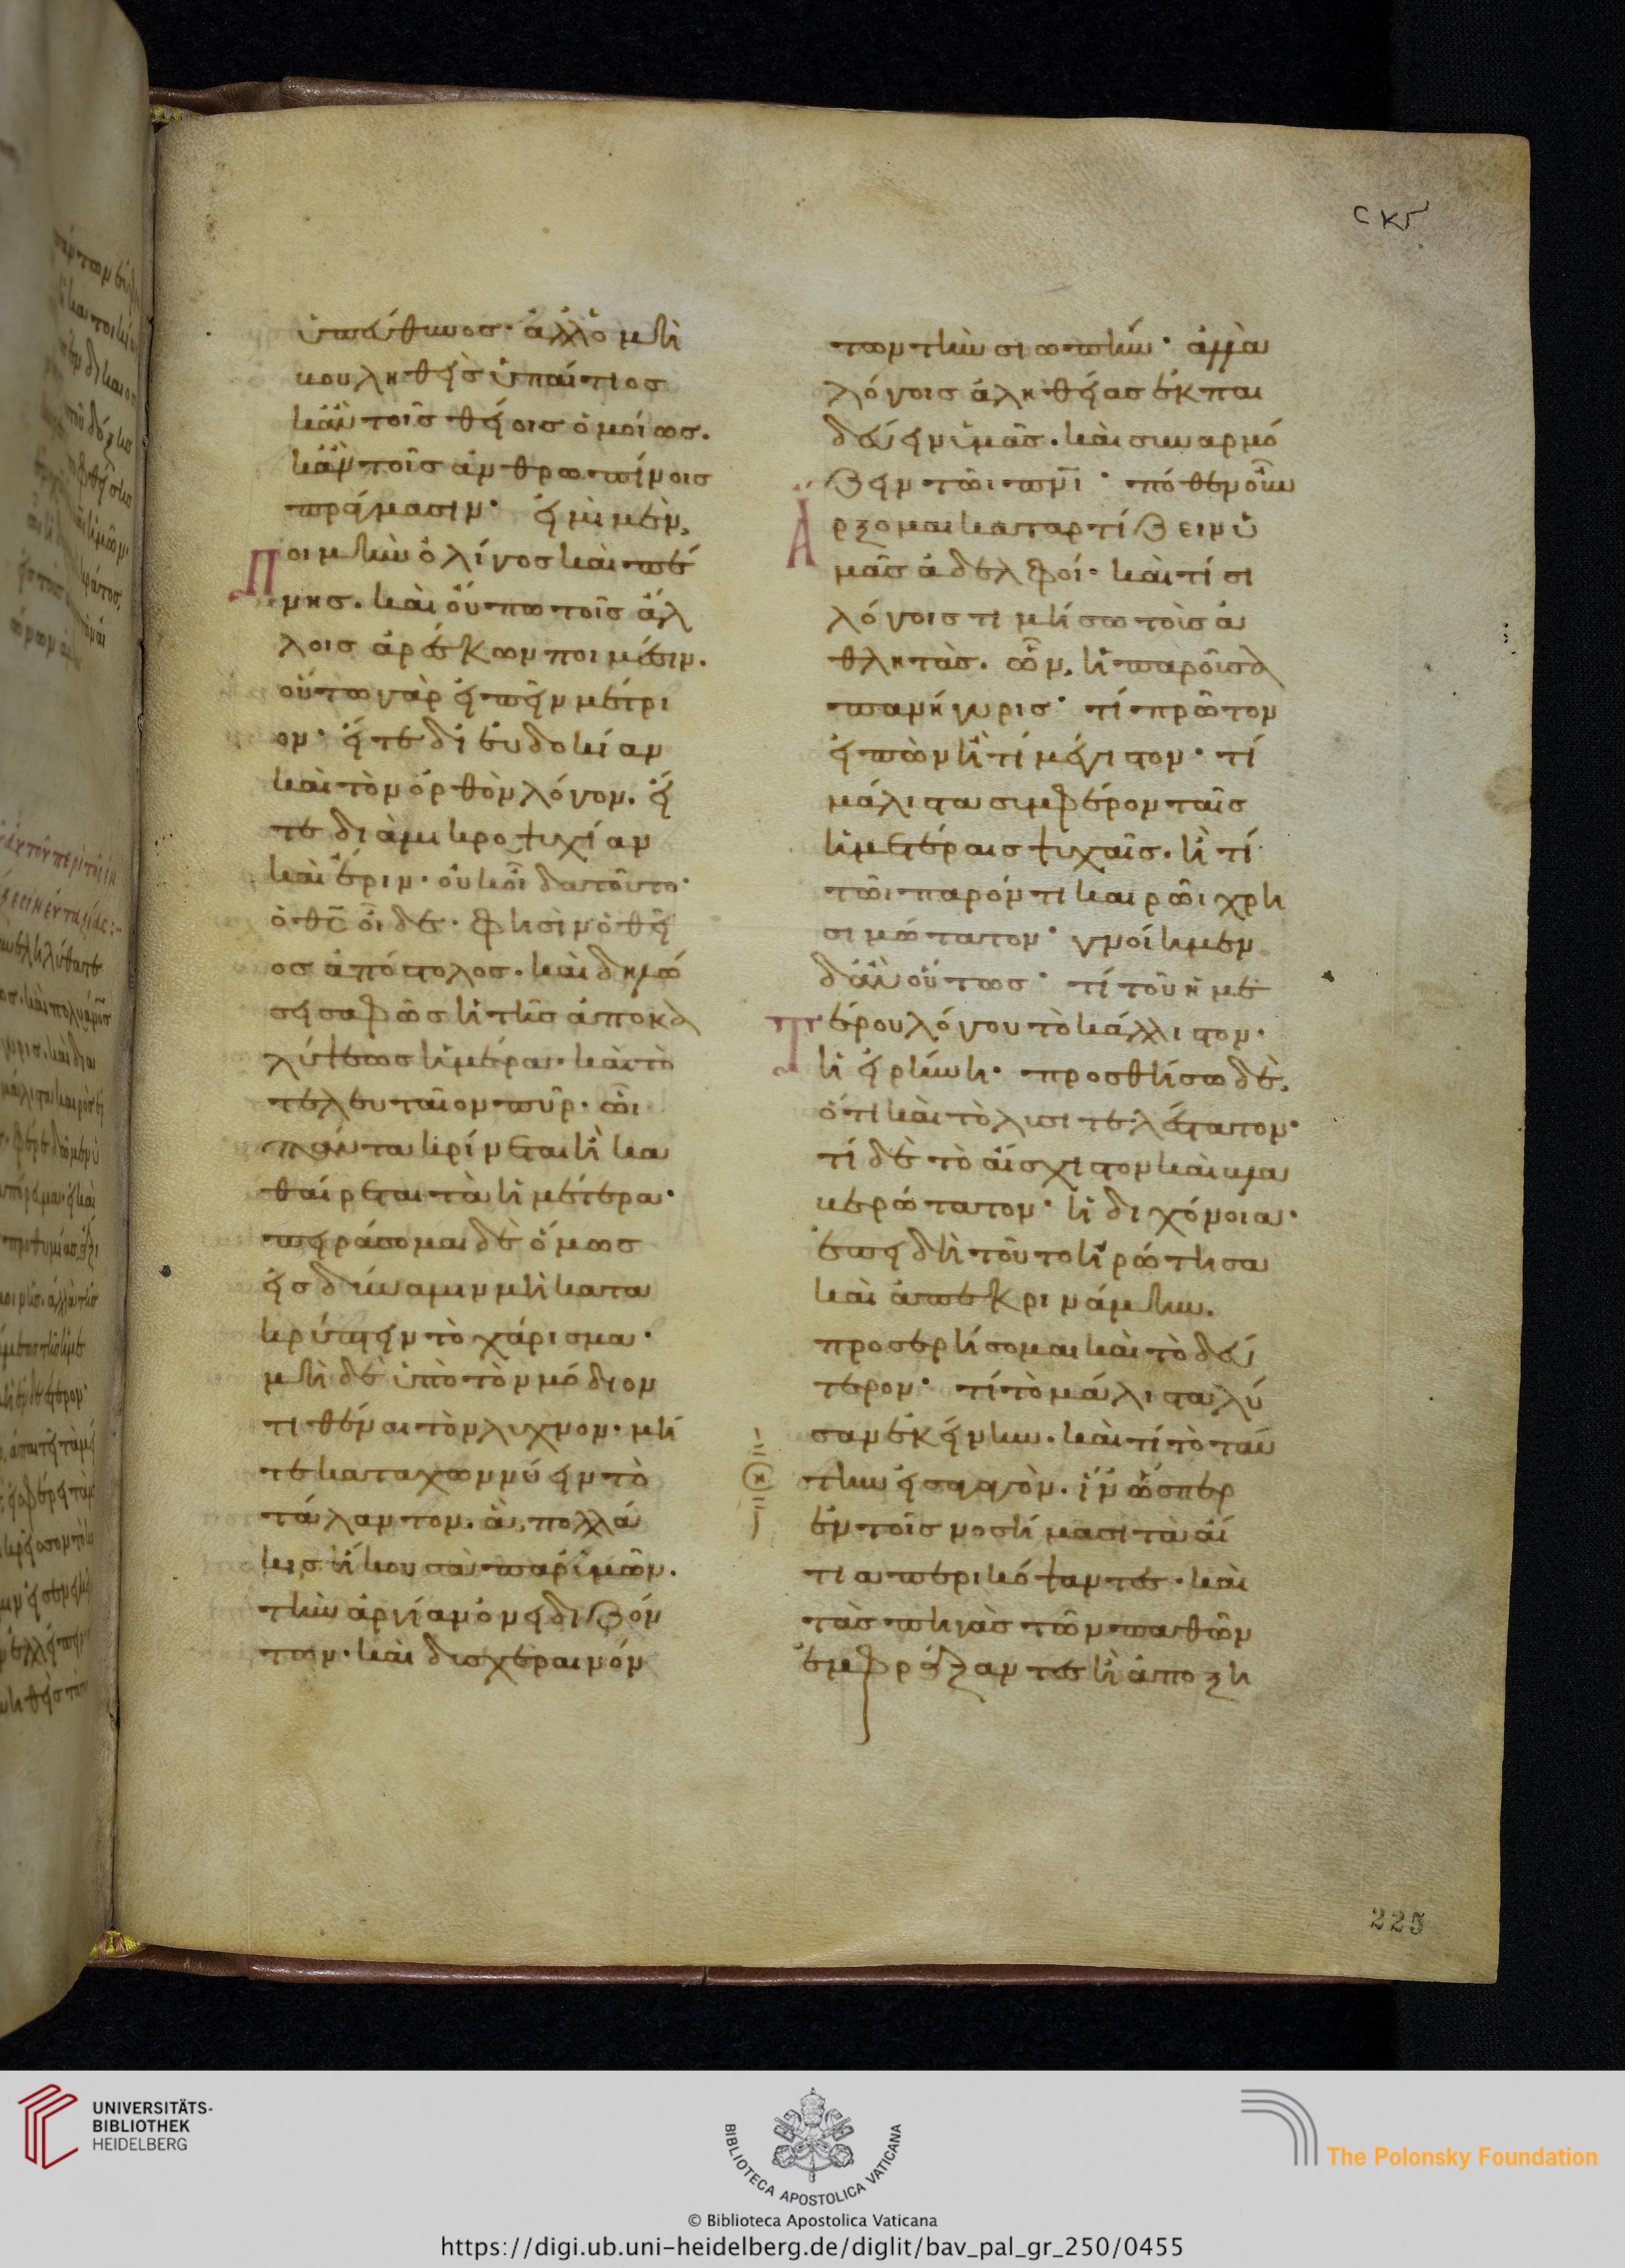 ὑπεύθυνος· ἀλλ' ὁ μὴ
βουληθεὶς ὑπαίτιος
κἂν τοῖς θείοις ὁμοίως.
κἂν τοῖς ἀνθρωπίνοις
πράγμασιν· εἰμὶ μὲν,
Ποιμὴν ὀλίγος καὶ πέ
νης. καὶ οὔπω τοῖς ἄλ
λοις ἀρέσκων ποιμέσιν.
οὕτω γὰρ εἰπεῖν μέτρι
ον· εἴτε δι' εὐδοκίαν
καὶ τὸν ὀρθὸν λόγον. εἴ
τε διὰ μικροψυχίαν
καὶ ἔριν· οὐκ οἶδα τοῦτο·
ὁ θς οἶδε. φησὶν ὁ θεῖ
ος ἀπόστολος. καὶ δηλώ
σει σαφῶς ἡ τῆς ἀποκα
λύψεως ἡμέρα. καὶ τὸ
τελευταῖον πῦρ. ὧι
πάντα κρίνεται ἢ κα
θαίρεται τὰ ἡμέτερα·
πειράσομαι δὲ ὅμως
εἰς δύναμιν μὴ κατα
κρύπτειν τὸ χάρισμα·
μὴ δὲ ὑπὸ τὸν μόδιον
τιθέναι τὸν λύχνον. μή
τε καταχωννύειν τὸ
τάλαντον. ἃ, πολλά
κις ἤκουσα παρ' ὑμῶν.
τὴν ἀργίαν ὀνειδιζόν
των· καὶ δυσχεραινόν
σκγ
των τὴν σιωπήν· ἀλλὰ
λόγοις ἀληθείας ἐκπαι
δεύειν ὑμᾶς. καὶ συναρμό
ζειν τῶι πνι· πόθεν οὖν
Ἄρξομαι καταρτίζειν ὑ
μᾶς ἀδελφοί· καὶ τίσι
λόγοις τιμήσω τοὺς ἀ
θλητὰς. ὧν, ἡ παροῦσα
πανήγυρις· τί πρῶτον
εἰπὼν ἢ τί μέγιστον· τί
μάλιστα συμφέρον ταῖς
ἡμετέραις ψυχαῖς. ἢ τί
τῶι παρόντι καιρῶι χρη
σιμώτατον· γνοίημεν
δ' ἂν οὕτως· τί τοῦ ἡμε
Τέρου λόγου τὸ κάλλιστον·
ἡ εἰρήνη· προσθήσω δὲ,
ὅτι καὶ τὸ λυσιτελέστατον·
τί δὲ τὸ αἴσχιστον καὶ βλα
βερώτατον· ἡ διχόνοια·
ἐπεὶ δὴ τοῦτο ἠρώτησα
καὶ ἀπεκρινάμην.
προσερήσομαι καὶ τὸ δεύ
τερον· τί τὸ μάλιστα λῦ
σαν ἐκείνην. καὶ τί τὸ ταύ
την εἰσαγαγὸν. ἵν' ὥσπερ
ἐν τοῖς νοσήμασι τὰ αἴ
τια περικόψαντες· καὶ
τὰς πηγὰς τῶν παθῶν
ἐμφράξαντες ἢ ἀποξη
225
UNIVERSITÄTS-
BIBLIOTHEK
HEIDELBERG
BIBLIOTECA APOSTOLICA VATICANA
The Polonsky Foundation
© Biblioteca Apostolica Vaticana
https://digi.ub.uni-heidelberg.de/diglit/bav_pal_gr_250/0455